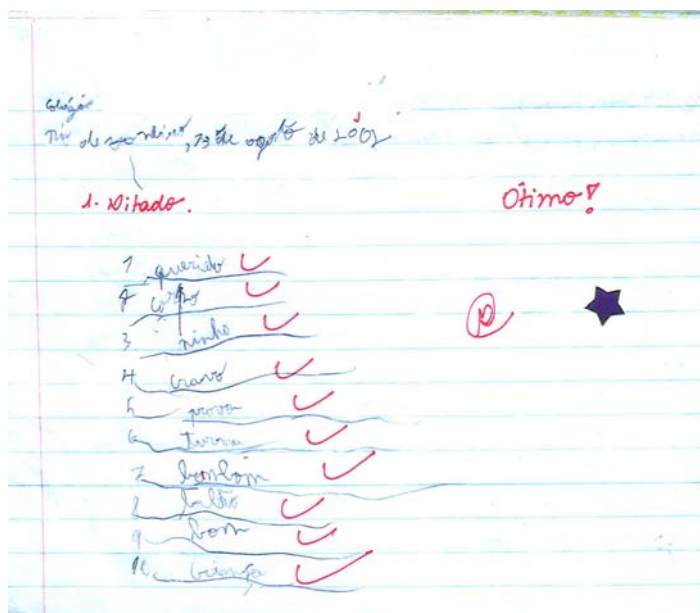 Colégio
de Janeiro, 13 de agosto de 2002
1. Ditado. Ótimo!
1 querido
2 corpo
3 ninho
4 cravo
5 prova
6 turma
7 bombom
8 balão
9 bom
10 criança